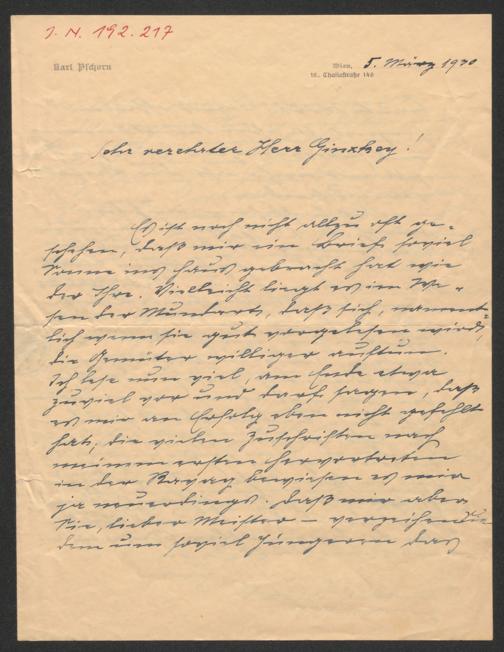 J. N. 192.217
Karl Pschorn
Wien, 5. März 1930
16., Thaliastraße 146
Sehr verehrter Herr Ginzkey!
Es ist noch nicht allzu oft ge-
schehen, daß mir ein Brief soviel
Sonne ins Haus gebracht hat wie
der Ihre. Vielleicht liegt es im We-
sen der Mundart, daß sich, nament-
lich wenn sie gut vorgelesen wird,
die Gemüter williger auftun.
Ich lese nun viel, am Ende etwa
zuviel vor und darf sagen, daß
es mir an Erfolg eben nicht gefehlt
hat, die vielen Zuschriften nach
meinem ersten Hervortreten
in der Ravag bewiesen es mir
ja neuerdings. Daß mir aber
Sie, lieber Meister – verzeihen Sie
dem um soviel Jüngeren das